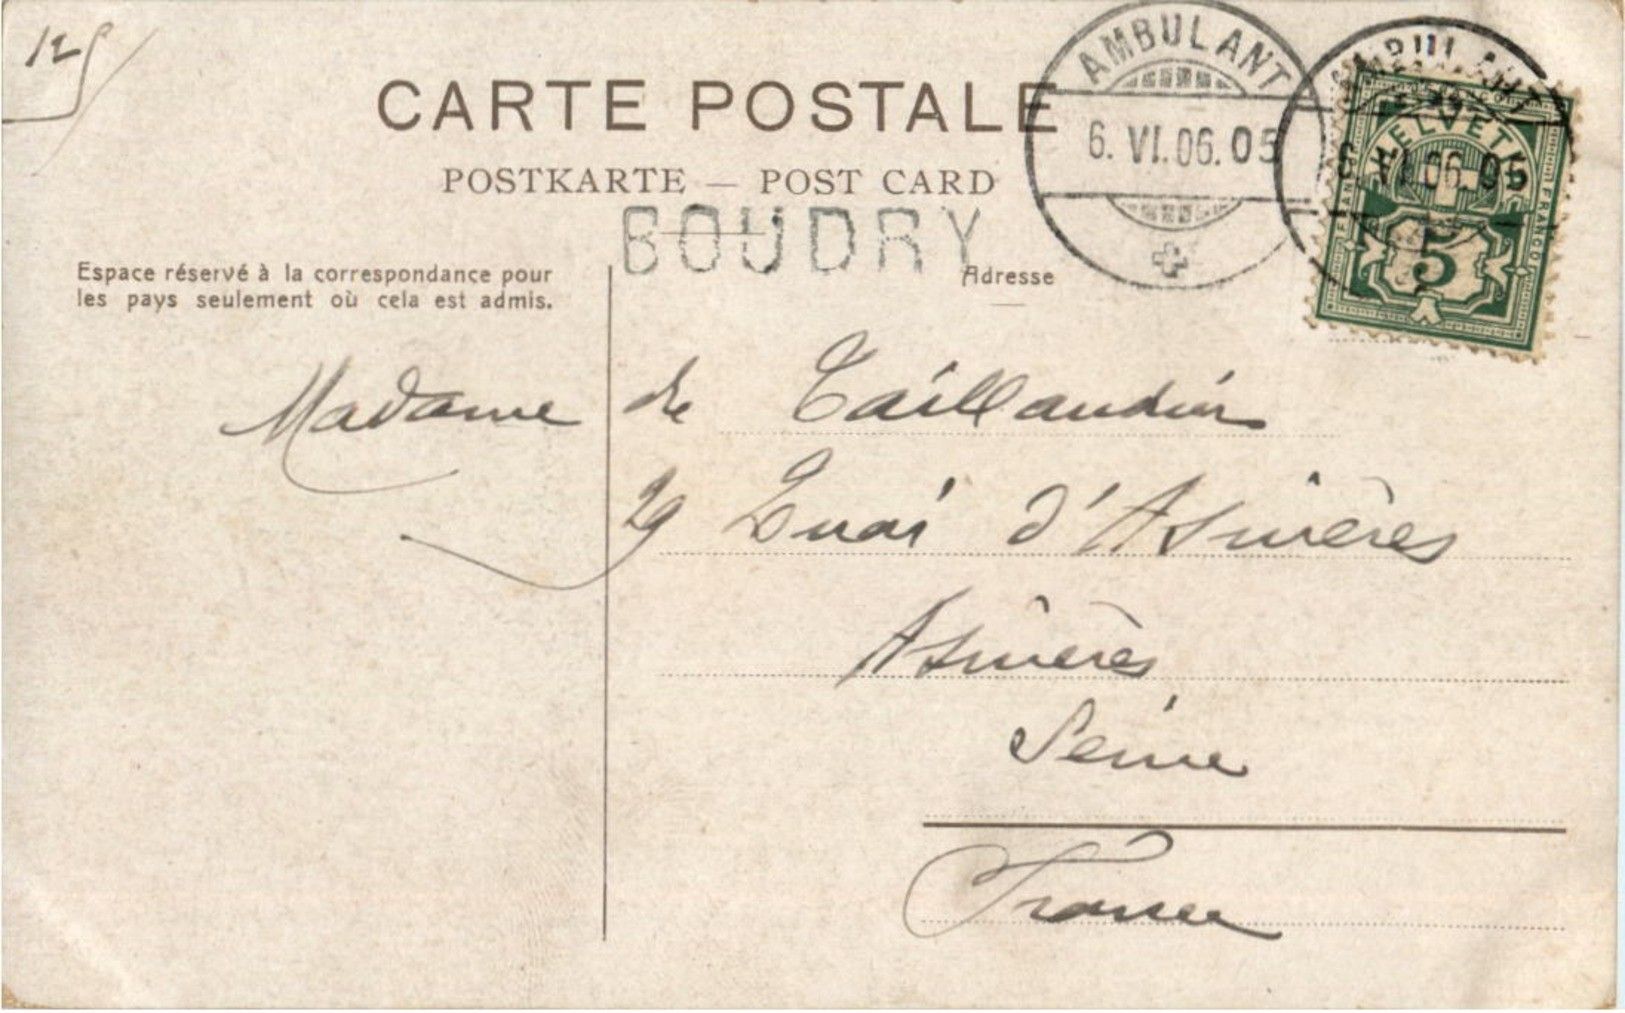 125
CARTE POSTALE
POSTKARTE — POST CARD
AMBULANT
6. VI. 06. 05
AMBULANT
6. VI. 06. 05
HELVETIA
FRANCO FRANCO
5
BOUDRY
Espace réservé à la correspondance pour
les pays seulement où cela est admis.
Adresse
Madame de Taillandier
29 Quai d'Asnières
Asnières
Seine
France